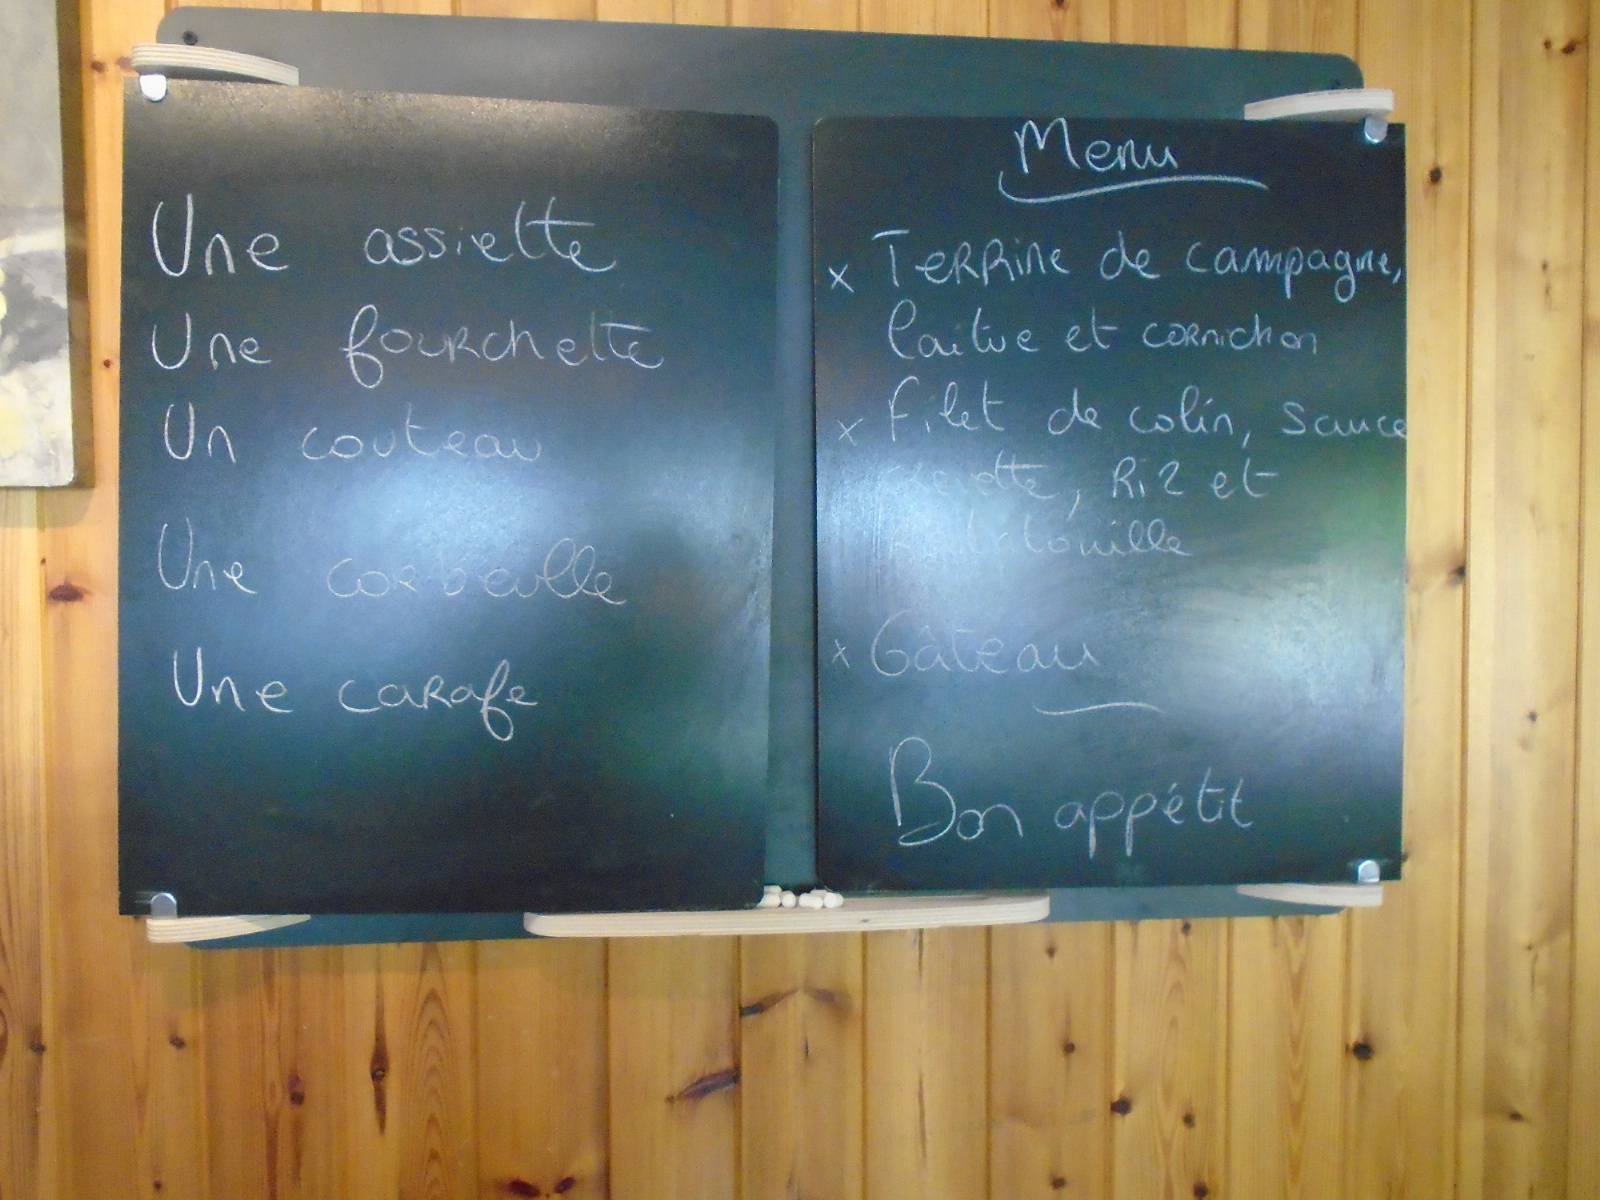 Une assiette
Une fourchette
Un couteau
Une corbeille
Une carafe
Menu
x Terrine de campagne,
laitue et cornichon
x Filet de colin, sauce
crevette, Riz et
Ratatouille
x Gâteau
Bon appétit